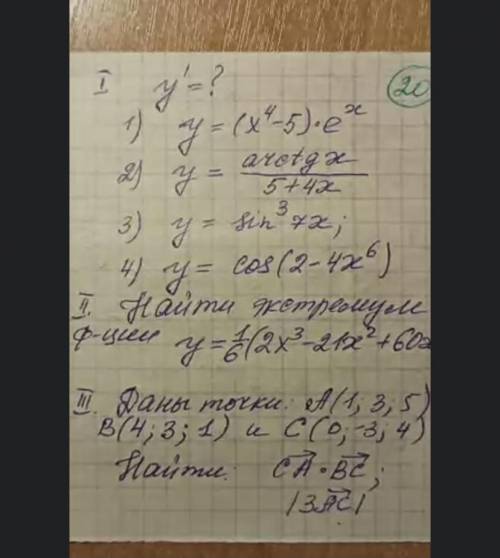 I y' = ? 20
1) y = (x⁴-5)·eˣ
2) y = arctgx / 5+4x
3) y = sin³7x;
4) y = cos(2-4x⁶)
II. Найти экстремум
ф-ции y = 1/6(2x³-21x²+60x
III. Даны точки: A(1; 3; 5)
B(4; 3; 1) и C(0; -3; 4)
Найти: CA→ · BC→;
|3AC→|